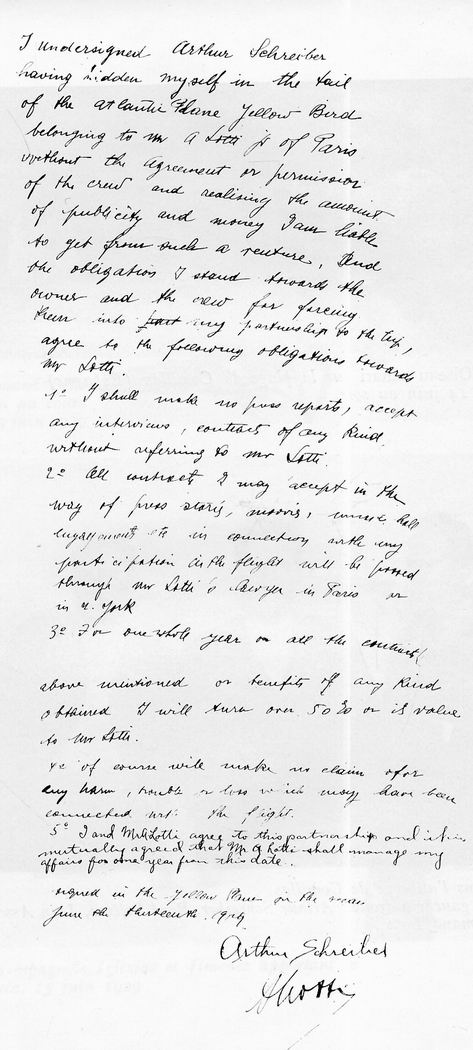 I undersigned Arthur Schreiber
having hidden myself in the tail
of the atlantic Plane Yellow Bird
belonging to Mr A Lotti jr of Paris
without the agreement or permission
of the crew and realising the amount
of publicity and money I am liable
to get from such a venture, And
the obligation I stand towards the
owner and the crew for forcing
them into my partnership to the trip,
agree to the following obligations towards
Mr Lotti.
1° I shall make no press reports, accept
any interviews, contracts of any kind
without referring to Mr Lotti.
2° All contracts I may accept in the
way of press stories, movies, music hall
engagements etc in connection with my
participation in the flight will be passed
through Mr Lotti's lawyer in Paris or
in N. York
3° For one whole year on all the contracts
above mentioned or benefits of any kind
obtained I will turn over 50% or its value
to Mr Lotti.
4° of course will make no claim for
any harm, trouble or loss which may have been
connected with the flight.
5° I and Mr A Lotti agree to this partnership and it is
mutually agreed that Mr A Lotti shall manage my
affairs for one year from this date.
signed in the Yellow Bird on the
June the thirteenth. 1929.
Arthur Schreiber
A Lotti